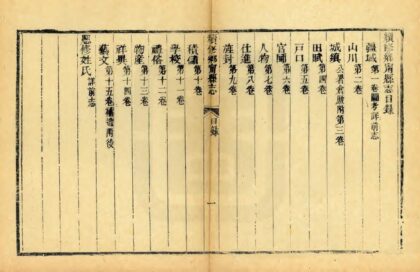 續修鄉甯縣志目錄
疆域第一卷圖考詳前志
山川第二卷
城鎮公署倉廒附第三卷
田賦第四卷
戶口第五卷
官師第六卷
人物第七卷
仕進第八卷
旌封第九卷
續修鄉甯縣志
目錄
一
積儲第十卷
學校第十一卷
禮俗第十二卷
物產第十三卷
祥異第十四卷
藝文第十五卷補遺附後
歷修姓氏詳前志